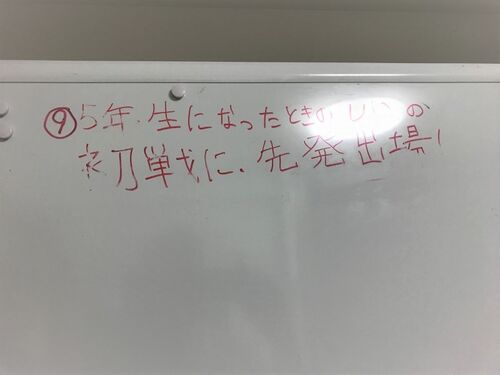 ⑨5年生になったときの の
初戦に、先発出場!